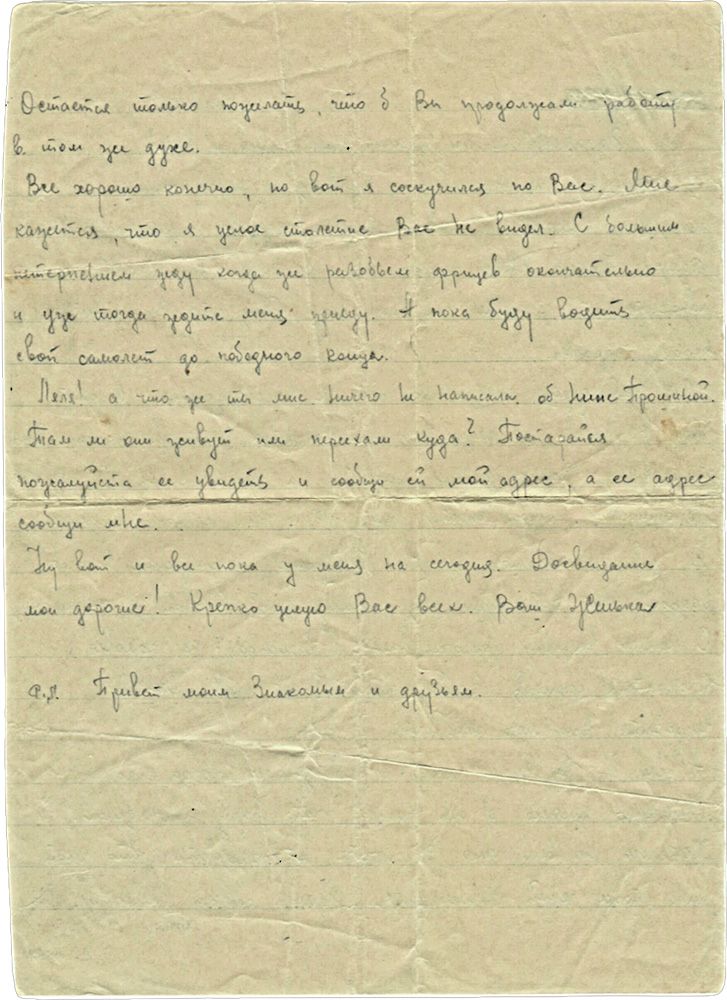 Остается только пожелать, что б Вы продолжали работу
в том же духе.
Все хорошо конечно, но вот я соскучился по Вас. Мне
кажется, что я целое столетие Вас не видел. С большим
нетерпением жду когда же разобьем фрицев окончательно
и уже тогда ждите меня приеду. А пока буду водить
свой самолет до победного конца.
Ляля! а что же ты мне ничего не написала об Нине Прошиной.
Там ли они живут или переехали куда? Постарайся
пожалуйста ее увидеть и сообщи ей мой адрес, а ее адрес
сообщи мне.
Ну вот и все пока у меня на сегодня. Досвидание
мои дорогие! Крепко целую Вас всех. Ваш Женька
P.S. Привет моим знакомым и друзьям.